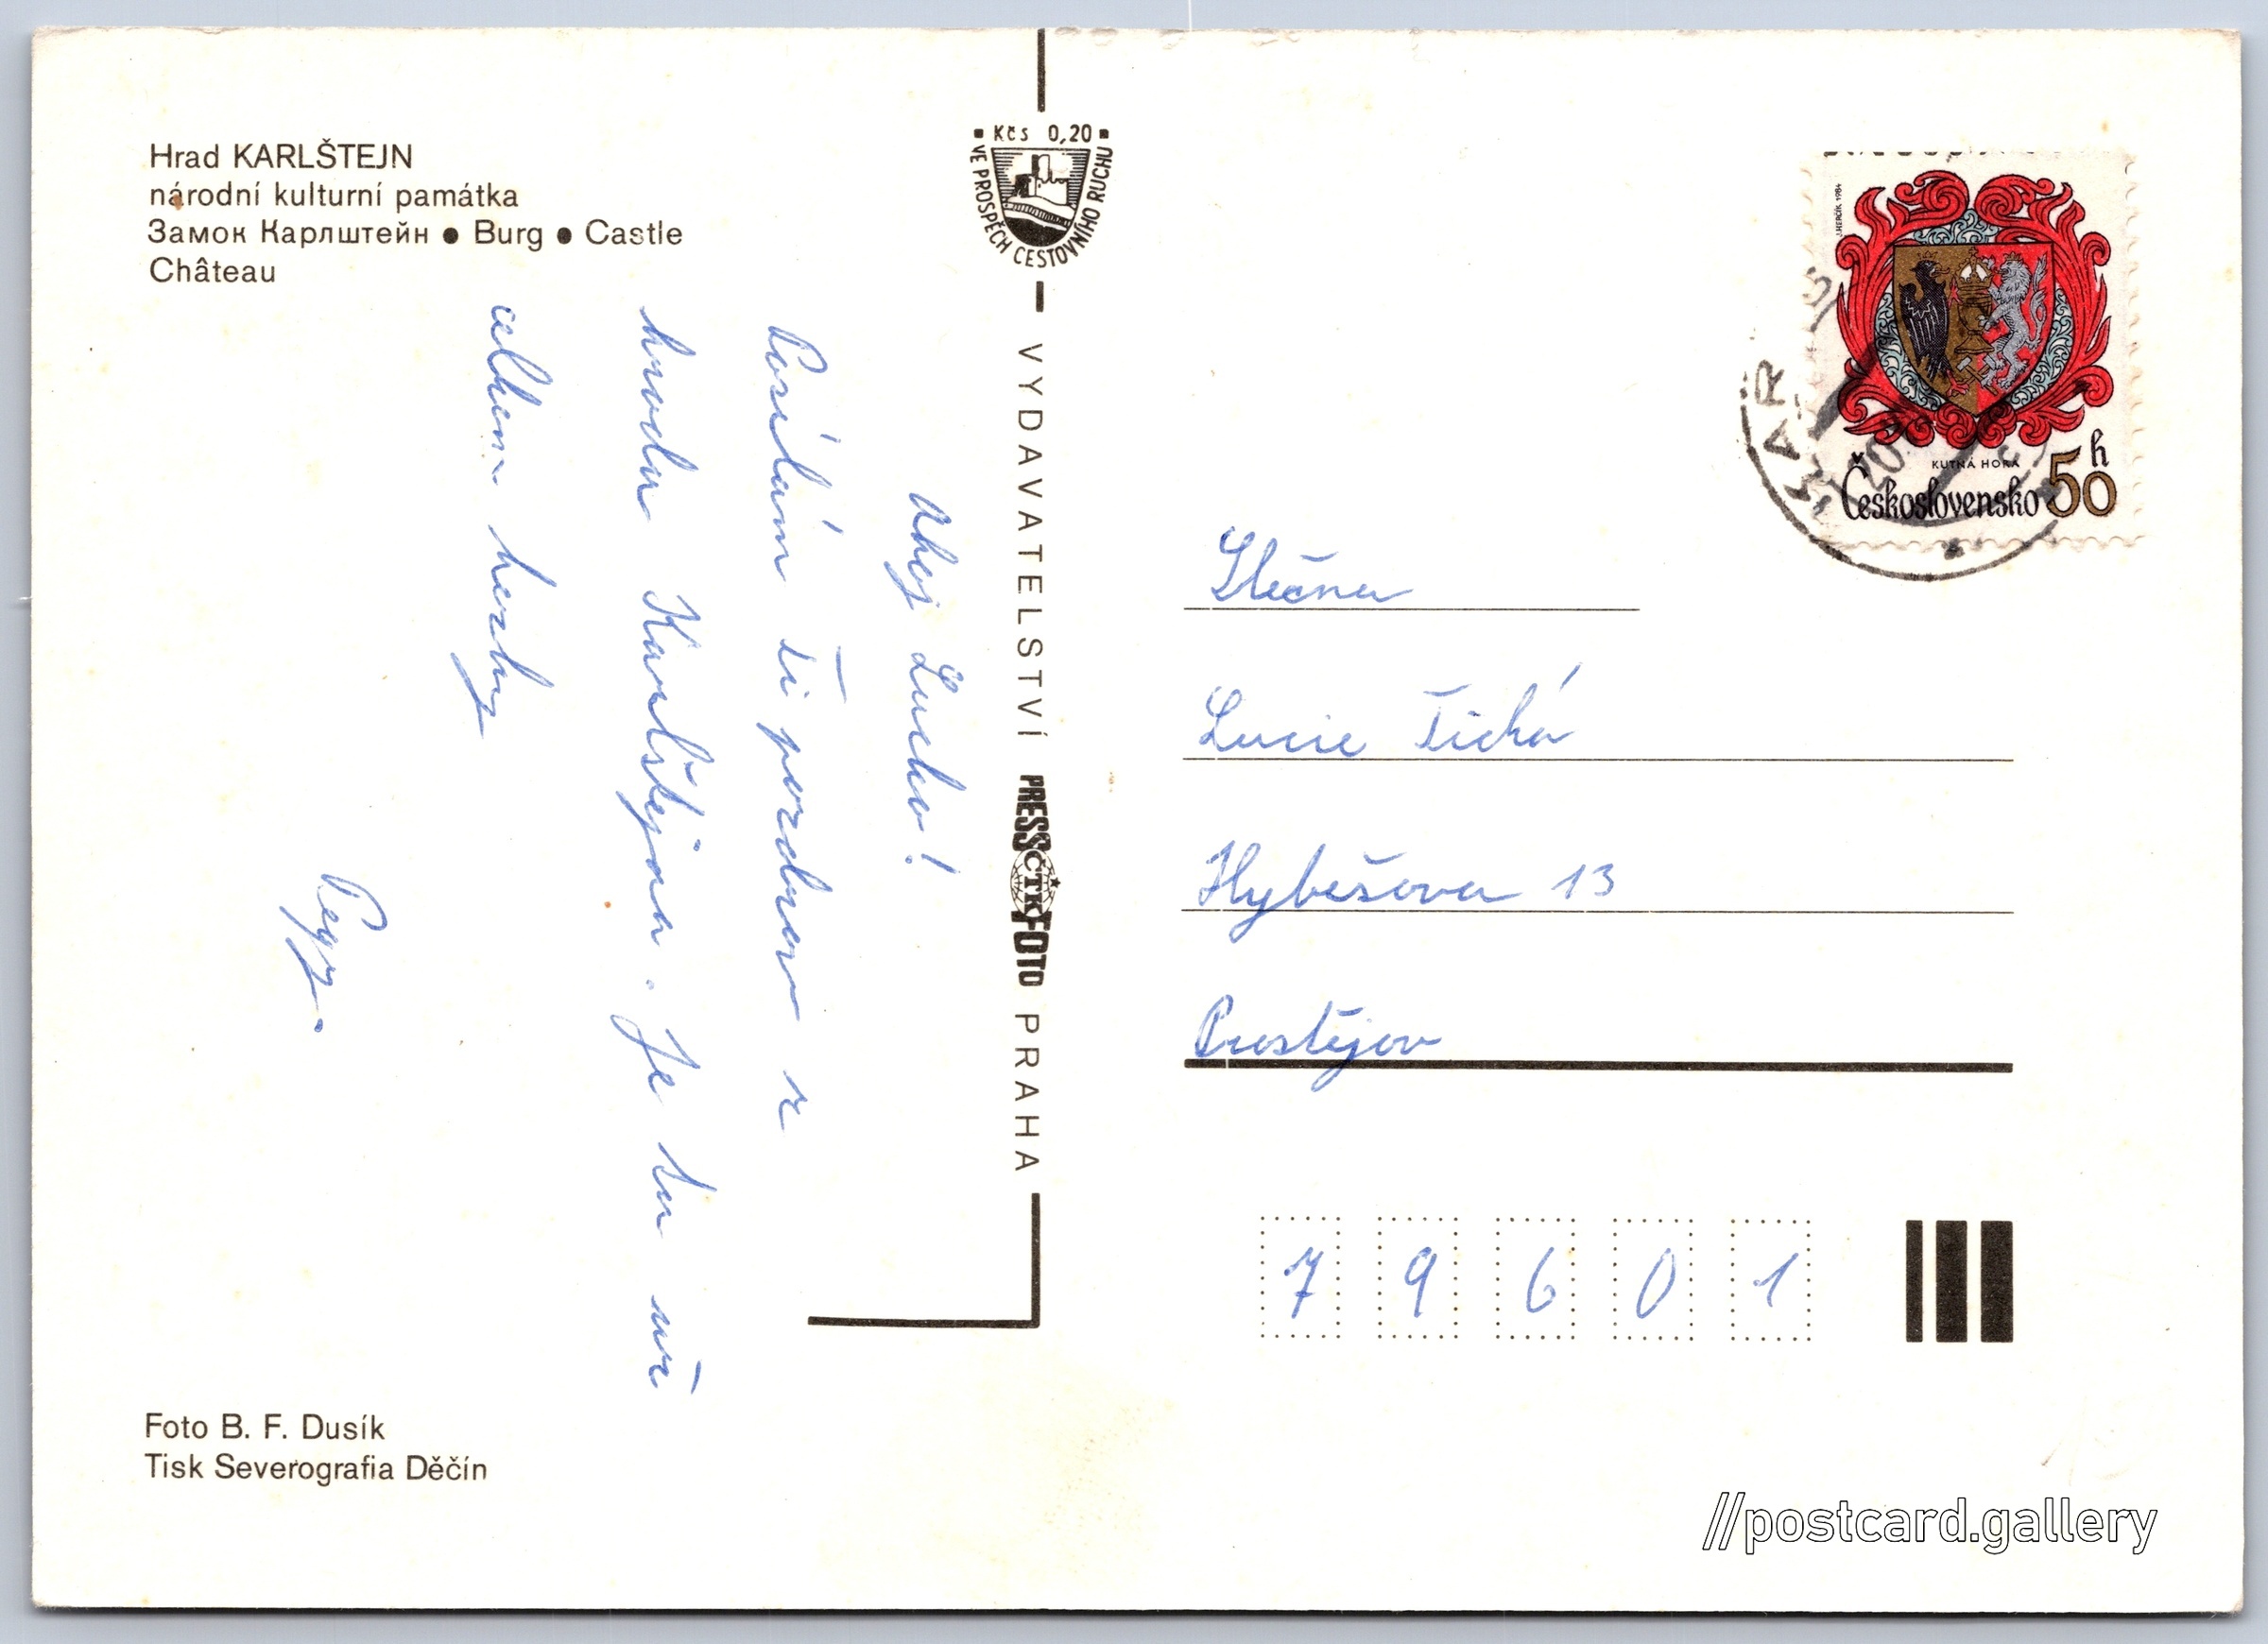 Hrad KARLŠTEJN
národní kulturní památka
Замок Карлштейн ● Burg ● Castle
Château
Ahoj Lucko!
Posílám Ti pozdrav z
hradu Karlštejna. Je tu
celkem hezky
Pegy.
Foto B. F. Dusík
Tisk Severografia Děčín
Kčs 0,20
VE PROSPĚCH CESTOVNÍHO RUCHU
VYDAVATELSTVÍ PRESSFOTO PRAHA
ČTK
J. HERČÍK 1984
KUTNÁ HORA
Československo 50 h
Slečna
Lucie Tichá
Hybešova 13
Prostějov
79601
//postcard.gallery